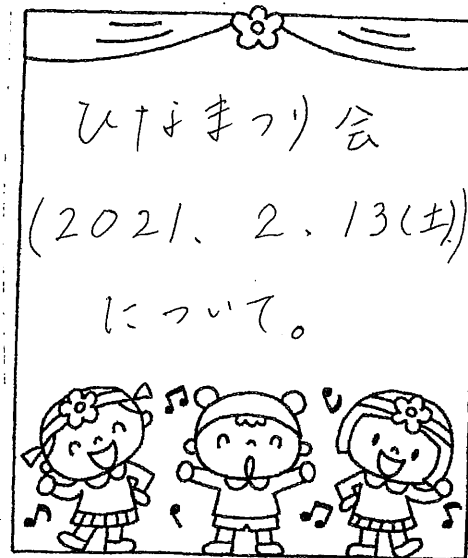 ひなまつり会
(2021、2、13(土))
について。